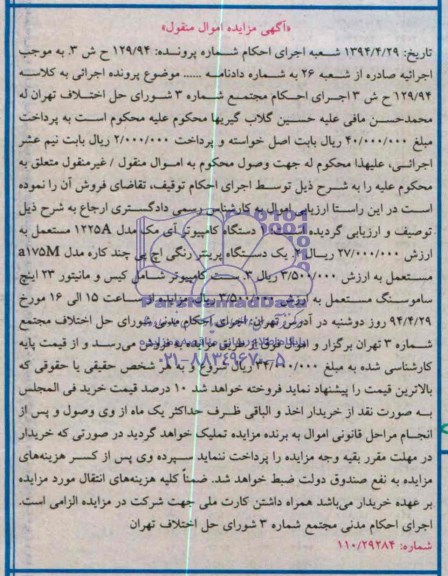 «آگهی مزایده اموال منقول»
تاریخ: ۱۳۹۴/۴/۲۹ شعبه اجرای احکام شماره پرونده: ۱۲۹/۹۴ ح ش ۳. به موجب
اجرائیه صادره از شعبه ۲۶ به شماره دادنامه ...... موضوع پرونده اجرائی به کلاسه
۱۲۹/۹۴ ح ش ۳ اجرای احکام مجتمع شماره ۳ شورای حل اختلاف تهران له
محمدحسن مافی علیه حسین گلاب گیریها محکوم علیه محکوم است به پرداخت
مبلغ ۴۰/۰۰۰/۰۰۰ ریال بابت اصل خواسته و پرداخت ۲/۰۰۰/۰۰۰ ریال بابت نیم عشر
اجرائی، علیهذا محکوم له جهت وصول محکوم به اموال منقول / غیرمنقول متعلق به
محکوم علیه را به شرح ذیل توسط اجرای احکام توقیف، تقاضای فروش آن را نموده
است در این راستا ارزیابی اموال به کارشناس رسمی دادگستری ارجاع به شرح ذیل
توصیف و ارزیابی گردیده دستگاه کامپیوتر آی مک مدل ۱۲۲۵A مستعمل به
ارزش ۲۷/۰۰۰/۰۰۰ ریال ۲. یک دستگاه پرینتر رنگی اچ پی چند کاره مدل a۱۷۵M
مستعمل به ارزش ۳/۵۰۰/۰۰۰ ریال ۳. کامپیوتر شامل کیس و مانیتور ۲۳ اینچ
سامسونگ مستعمل به ارزش ۳/۵۰۰/۰۰۰ ریال مزایده از ساعت ۱۵ الی ۱۶ مورخ
۹۴/۴/۲۹ روز دوشنبه در آدرس تهران، اجرای احکام مدنی شورای حل اختلاف مجتمع
شماره ۳ تهران برگزار و اموال فوق از طریق مزایده به فروش می‌رسد و از قیمت پایه
کارشناسی شده به مبلغ ریال شروع و به هر شخص حقیقی یا حقوقی که
بالاترین قیمت را پیشنهاد نماید فروخته خواهد شد ۱۰ درصد قیمت خرید فی المجلس
به صورت نقد از خریدار اخذ و الباقی ظرف حداکثر یک ماه از وی وصول و پس از
انجام مراحل قانونی اموال به برنده مزایده تملیک خواهد گردید در صورتی که خریدار
در مهلت مقرر بقیه وجه مزایده را پرداخت ننماید سپرده وی پس از کسر هزینه‌های
مزایده به نفع صندوق دولت ضبط خواهد شد. ضمناً کلیه هزینه‌های انتقال مورد مزایده
بر عهده خریدار می‌باشد همراه داشتن کارت ملی جهت شرکت در مزایده الزامی است.
اجرای احکام مدنی مجتمع شماره ۳ شورای حل اختلاف تهران
شماره: ۱۱۰/۲۹۲۸۴
ParsNamadData
۰۲۱-۸۸۳۴۹۶۷۰-۵